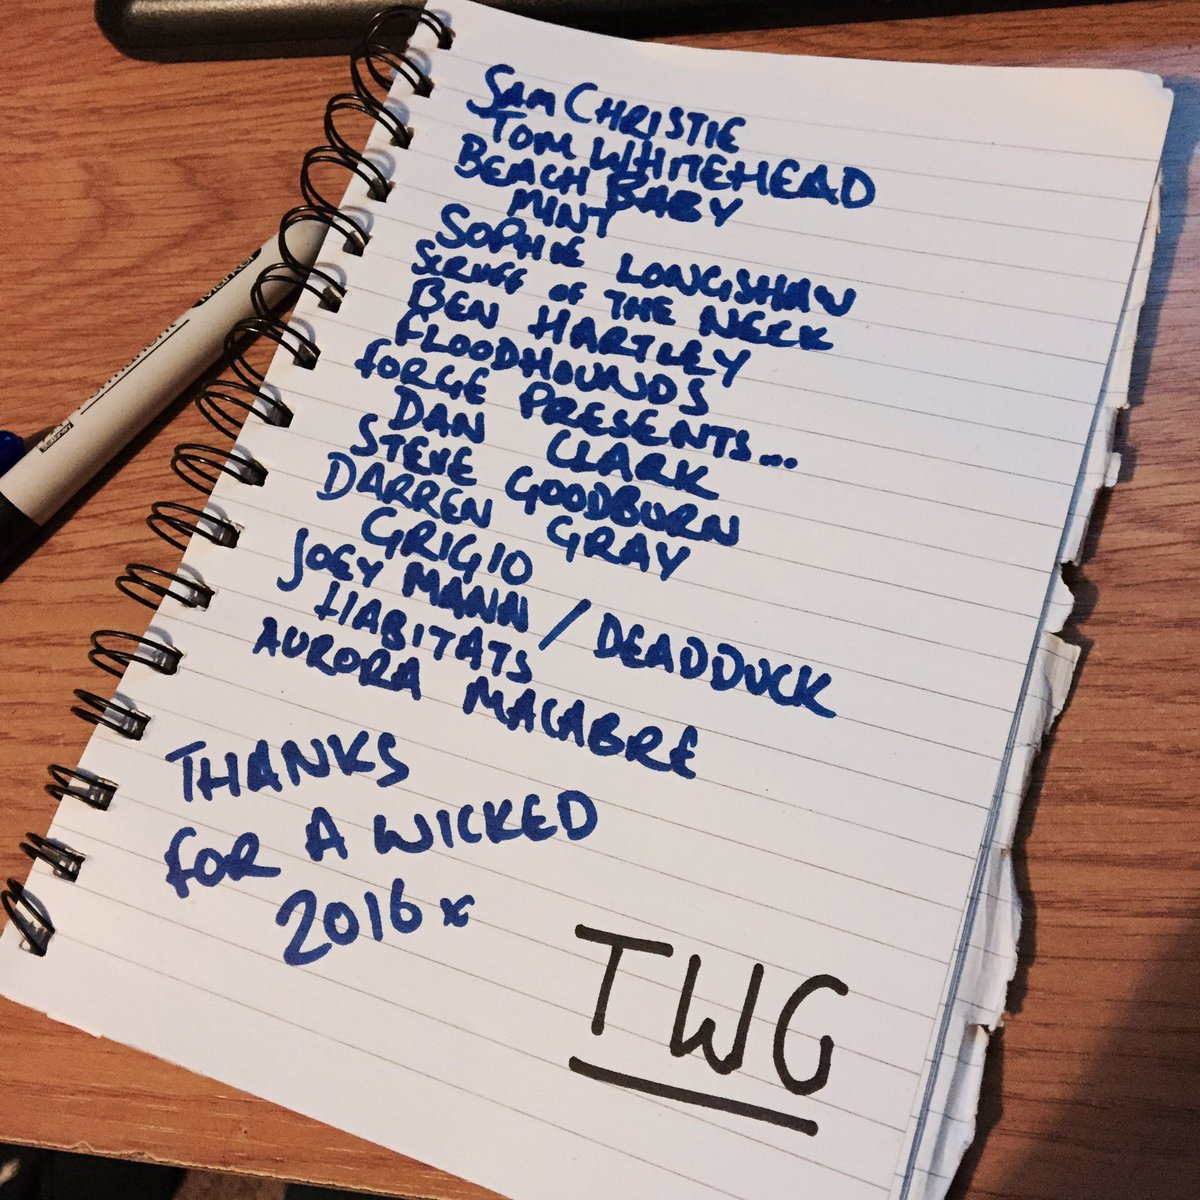 SAM CHRISTIE
TOM WHITEHEAD
BEACH BABY
MINT
SOPHIE LONGSHAW
SCRUFF OF THE NECK
BEN HARTLEY
FLOODHOUNDS
FORGE PRESENTS...
DAN CLARK
STEVE GOODBURN
DARREN GRAY
GRIGIO
JOEY MANN / DEADDUCK
HABITATS
AURORA MACABRE
THANKS
FOR A WICKED
2016 x
TWG
Marker